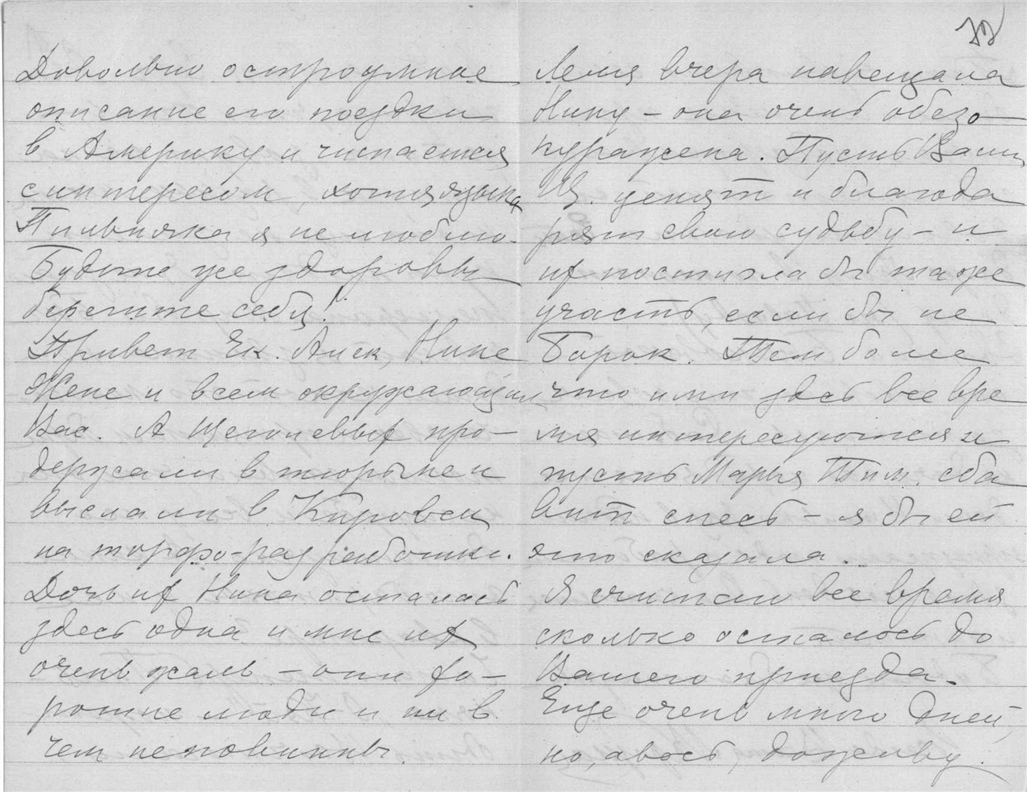 Довольно остроумное
описание его поездки
в Америку и читается
с интересом, хотя языка
Пильняка я не люблю.
Будьте же здоровы
берегите себя!
Привет Ек. Алек, Нине
Жене и всем окружающим
Вас. А Щеголевых про-
держали в тюрьме и
выслали в Кировск
на торфо-разработки.
Дочь их Нина осталась
здесь одна и мне их
очень жаль – они хо-
рошие люди и ни в
чем неповинны.
32
Леля вчера навещала
Нину – она очень обезо
куражена. Пусть Ваши
В. ценят и благода
рят свою судьбу – и
их постигла бы та же
участь, если бы не
Барок. Тем более
что ими здесь все вре
мя интересуются и
пусть Марья Тим. сба
вит спесь – я бы ей
это сказала.
Я считаю все время
сколько осталось до
Вашего приезда.
Еще очень много дней,
но, авось, доживу.